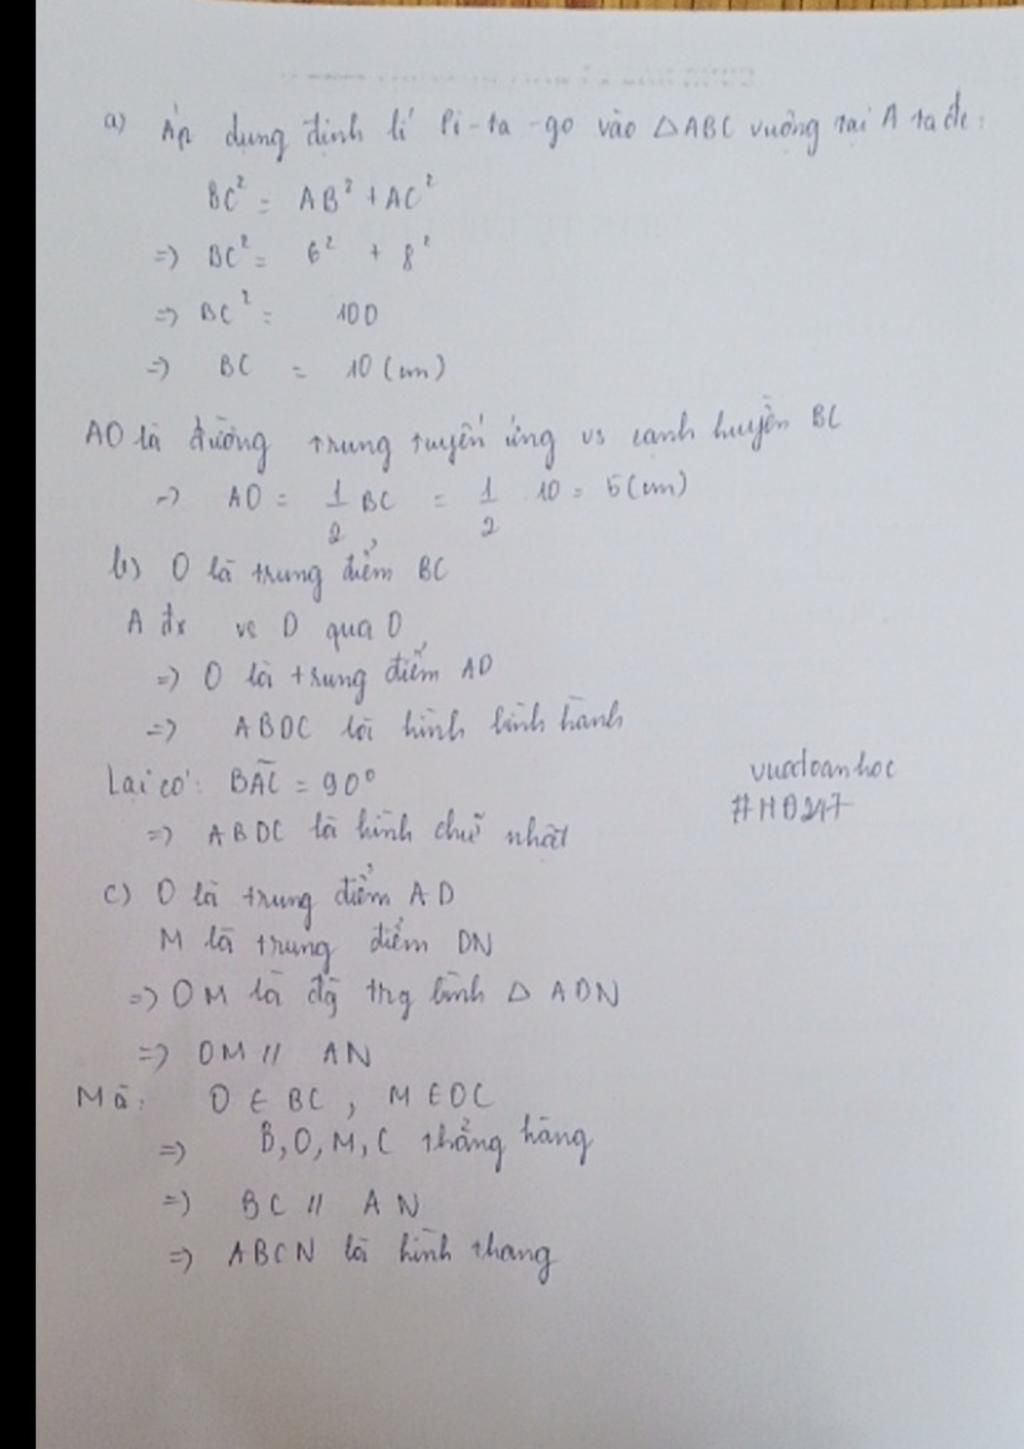 a) Áp dụng định lí Pi-ta-go vào △ABC vuông tại A ta đc:
BC² = AB² + AC²
=> BC² = 6² + 8²
=> BC² = 100
=> BC = 10 (cm)
AO là đường trung tuyến ứng vs cạnh huyền BC
=> AO = 1/2 BC = 1/2 10 = 5 (cm)
b) O là trung điểm BC
A đx vs D qua O
=> O là trung điểm AD
=> ABDC là hình bình hành
Lại có: BAC = 90°
=> ABDC là hình chữ nhật
vuatoanhoc
#HD247
c) O là trung điểm AD
M là trung điểm DN
=> OM là đg trg bình △ ADN
=> OM // AN
Mà: O ∈ BC, M ∈ OC
=> B, O, M, C thẳng hàng
=> BC // AN
=> ABCN là hình thang